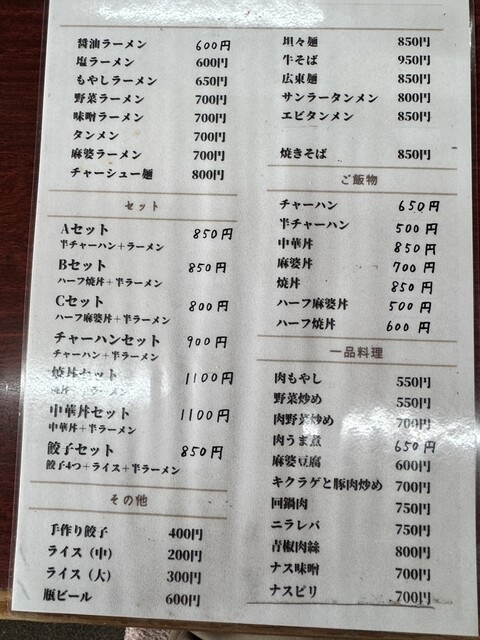 醤油ラーメン 600円
塩ラーメン 600円
もやしラーメン 650円
野菜ラーメン 700円
味噌ラーメン 700円
タンメン 700円
麻婆ラーメン 700円
チャーシュー麺 800円
セット
Aセット 850円
半チャーハン+ラーメン
Bセット 850円
ハーフ焼丼+半ラーメン
Cセット 800円
ハーフ麻婆丼+半ラーメン
チャーハンセット 900円
チャーハン+半ラーメン
焼丼セット 1100円
焼丼+半ラーメン
中華丼セット 1100円
中華丼+半ラーメン
餃子セット 850円
餃子4つ+ライス+半ラーメン
その他
手作り餃子 400円
ライス(中) 200円
ライス(大) 300円
瓶ビール 600円
坦々麺 850円
牛そば 950円
広東麺 850円
サンラータンメン 800円
エビタンメン 850円
焼きそば 850円
ご飯物
チャーハン 650円
半チャーハン 500円
中華丼 850円
麻婆丼 700円
焼丼 850円
ハーフ麻婆丼 500円
ハーフ焼丼 600円
一品料理
肉もやし 550円
野菜炒め 550円
肉野菜炒め 700円
肉うま煮 650円
麻婆豆腐 600円
キクラゲと豚肉炒め 700円
回鍋肉 750円
ニラレバ 750円
青椒肉絲 800円
ナス味噌 700円
ナスピリ 700円